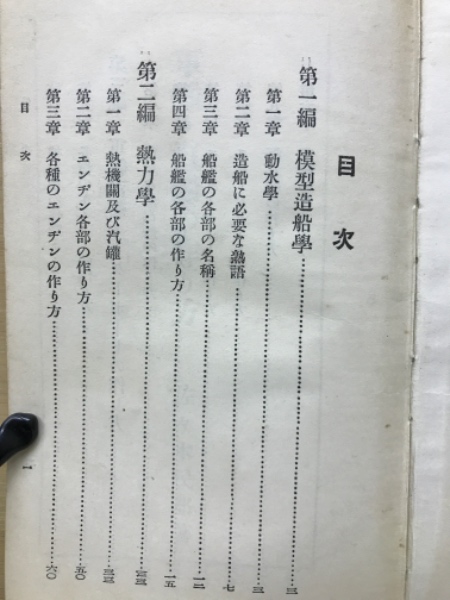 目次
第一編 模型造船學………三
第一章 動水學………三
第二章 造船に必要な熟語………七
第三章 船艦の各部の名稱………一二
第四章 船艦の各部の作り方………一五
第二編 熱力學………三三
第一章 熱機關及び汽罐………三三
第二章 エンヂン各部の作り方………五〇
第三章 各種のエンヂンの作り方………六〇
目次
一